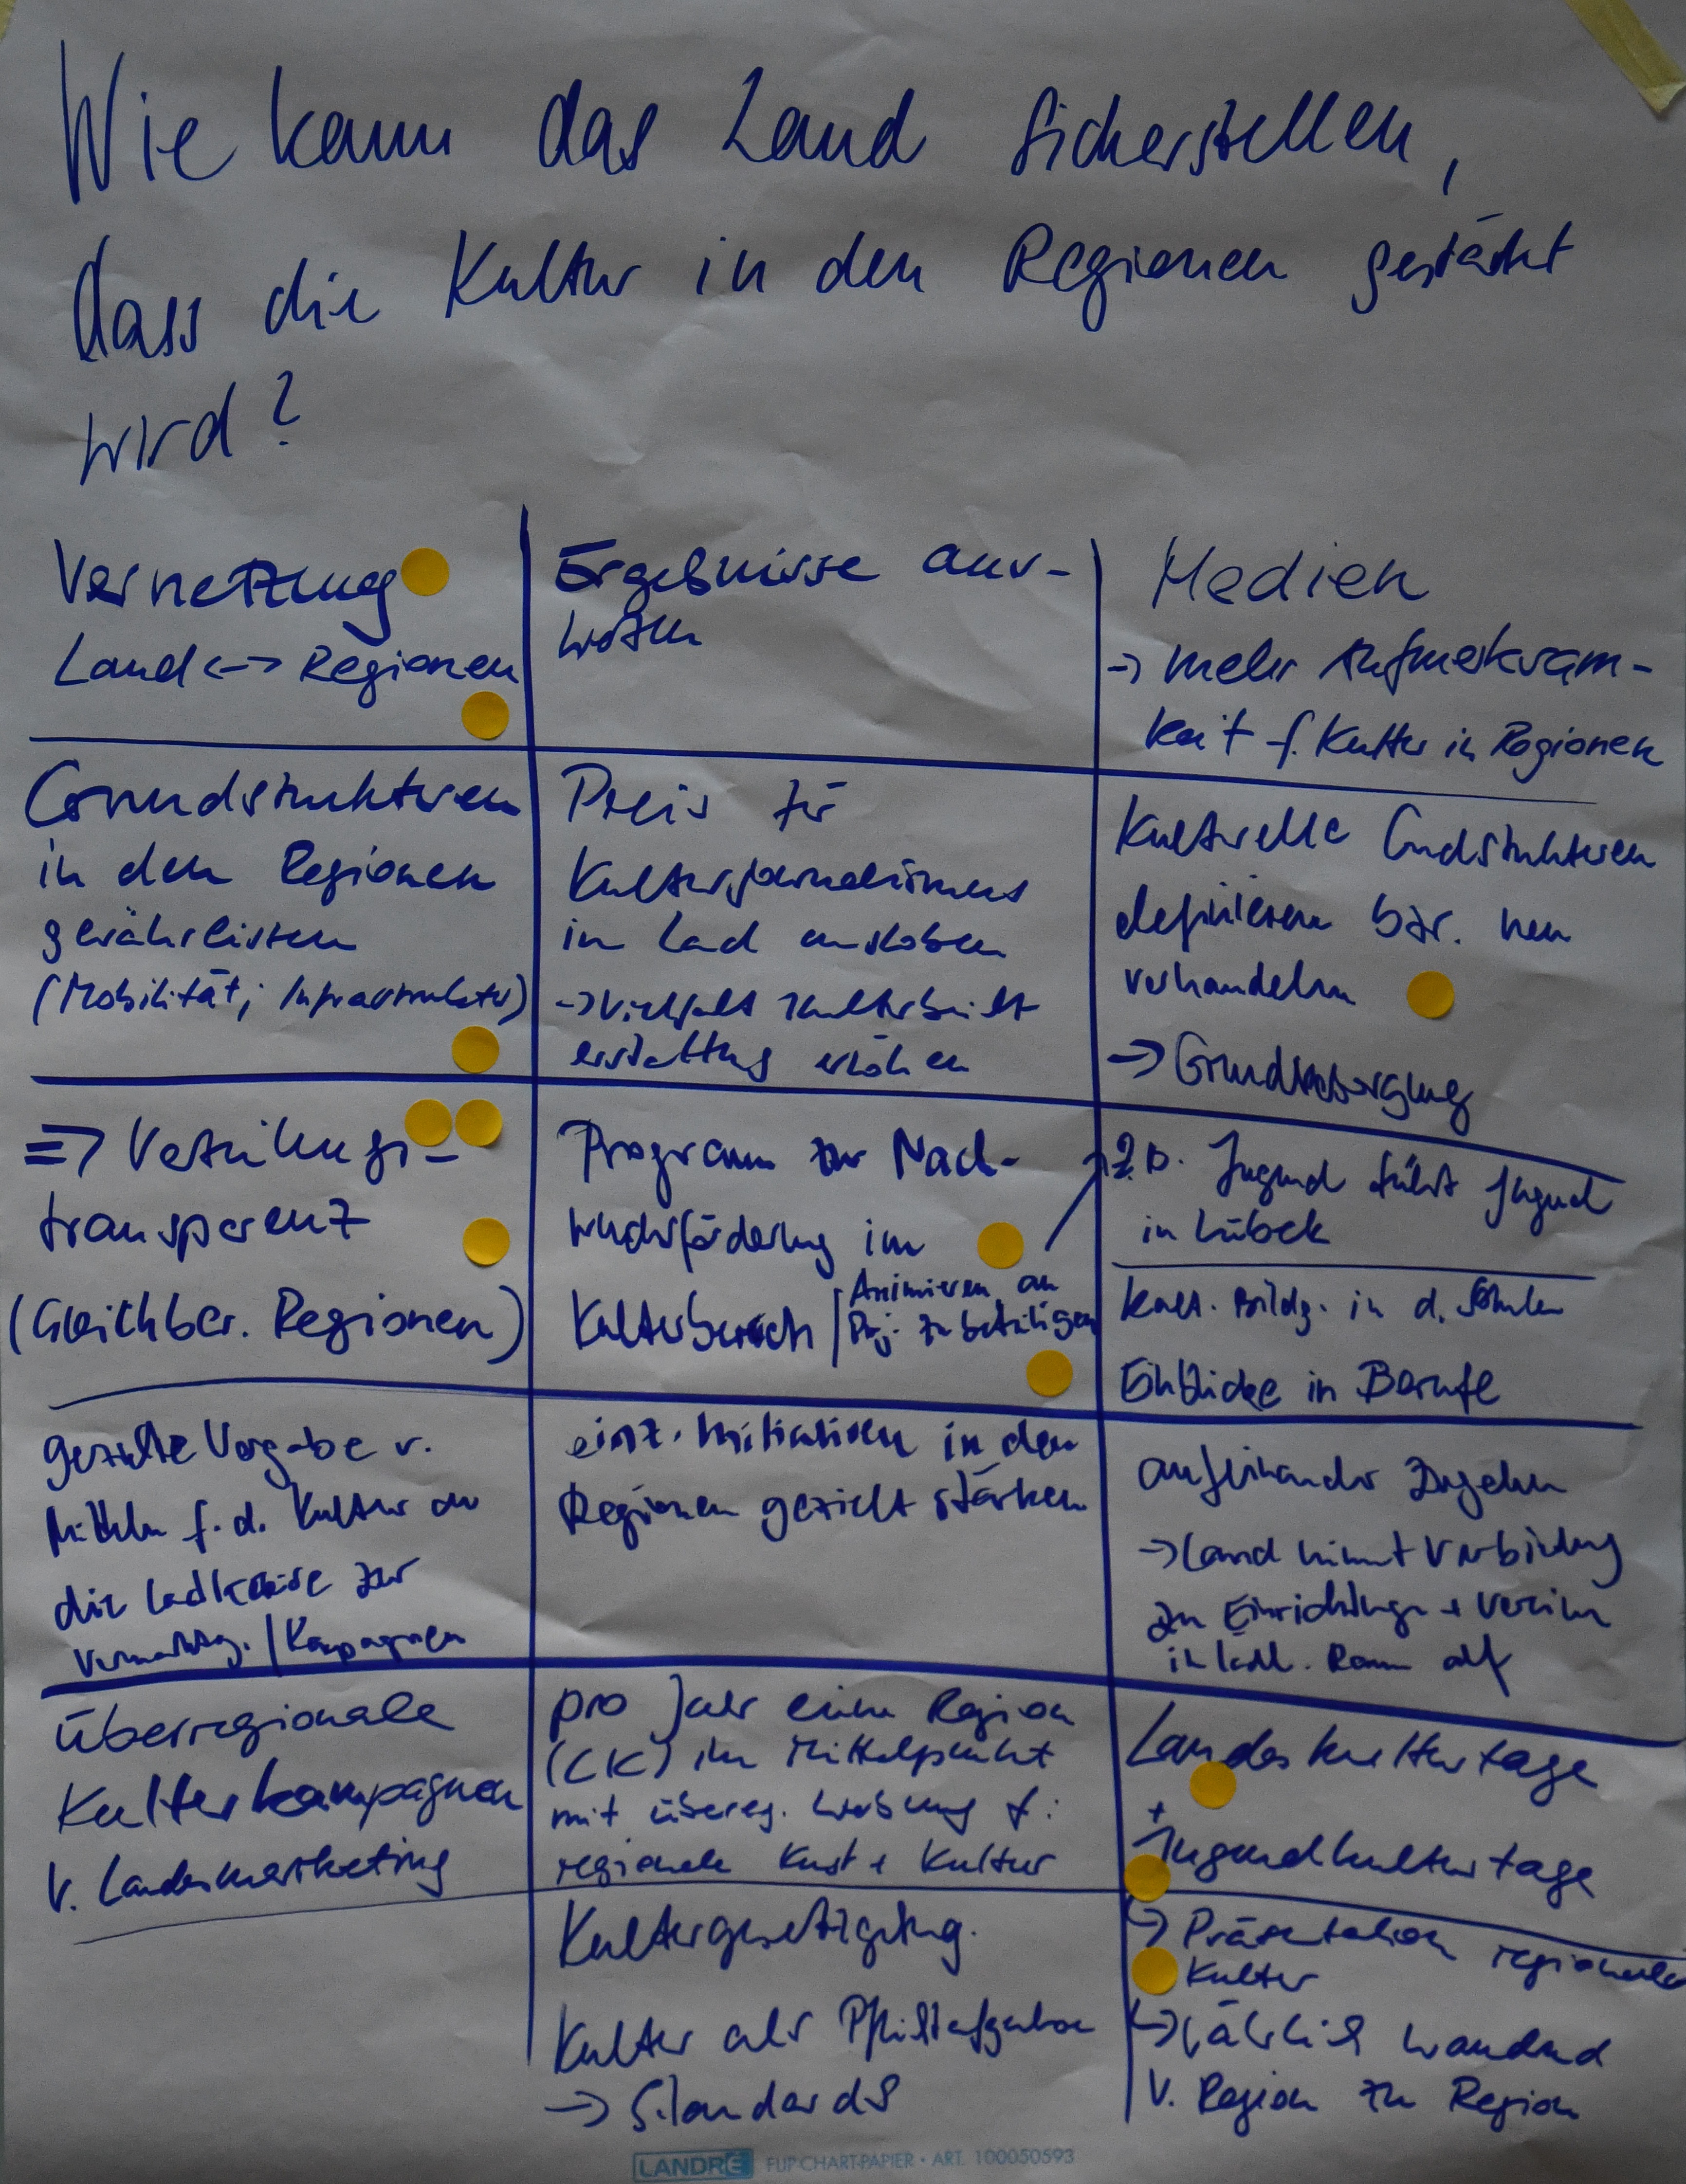 Wie kann das Land sicherstellen,
dass die Kultur in den Regionen gestärkt
wird?
Vernetzung
Land <-> Regionen
Ergebnisse aus-
werten
Medien
-> mehr Aufmerksam-
keit f. Kultur in Regionen
Grundstrukturen
in den Regionen
gewährleisten
(Mobilität; Infrastruktur)
Preis für
Kulturjournalismus
im Land ausloben
-> Vielfalt Kulturbericht
erstattung erhöhen
Kulturelle Grundstrukturen
definieren bzw. neu
verhandeln
-> Grundversorgung
=> Verteilungs-
transparenz
(Gleichber. Regionen)
Programm zur Nach-
wuchsförderung im
Kulturbereich / Animieren, an
Proj. zu beteiligen
z.B. Jugend führt Jugend
in Lübeck
kult. Bildg. in d. Schulen
Einblicke in Berufe
gezielte Vergabe v.
Mitteln f. d. Kultur an
die Landkreise zur
Vermarktg. / Kampagnen
einz. Initiativen in den
Regionen gezielt stärken
aufeinander zugehen
-> Land nimmt Verbindung
zu Einrichtungen + Vereinen
in ländl. Raum auf
überregionale
Kulturkampagnen
v. Landesmarketing
pro Jahr eine Region
(LK) im Mittelpunkt
mit überreg. Werbung f.
regionale Kunst + Kultur
Landeskulturtage
+
Jugendkulturtage
-> Präsentation regionaler
Kultur
-> jährlich wandernd
v. Region zu Region
Kulturgesetzgebung.
Kultur als Pflichtaufgabe
-> Standards
LANDRÉ FLIP-CHART-PAPIER · ART. 100050593